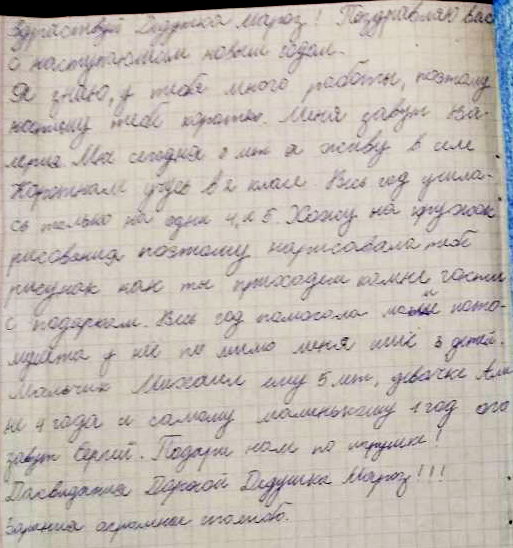 Здраствуй Дедушка Мароз! Поздравляю вас
с наступающим новым годом.
Я знаю, у тебя много работы, поэтому
напишу тебе коротко. Меня завут Ва-
лерия Мне сегодня 8 лет я живу в селе
учусь в 2 класе. Весь год училa-
сь только на одни 4, и 5. Хожу на кружок
рисования поэтому нарисовала тебе
рисунак как ты приходем камне гости
с подаркам. Весь год помогала маме пото-
мушта у неё по мимо меня ищё 3 детей.
Мальчик Михаил ему 5 лет, девочке Али
не 4 года и самому маленькаму 1 год его
завут Сергей. Подари нам по игрушке!
Дасвидания Дорогой Дедушка Мароз!!!
Зарания огромное спасибо.